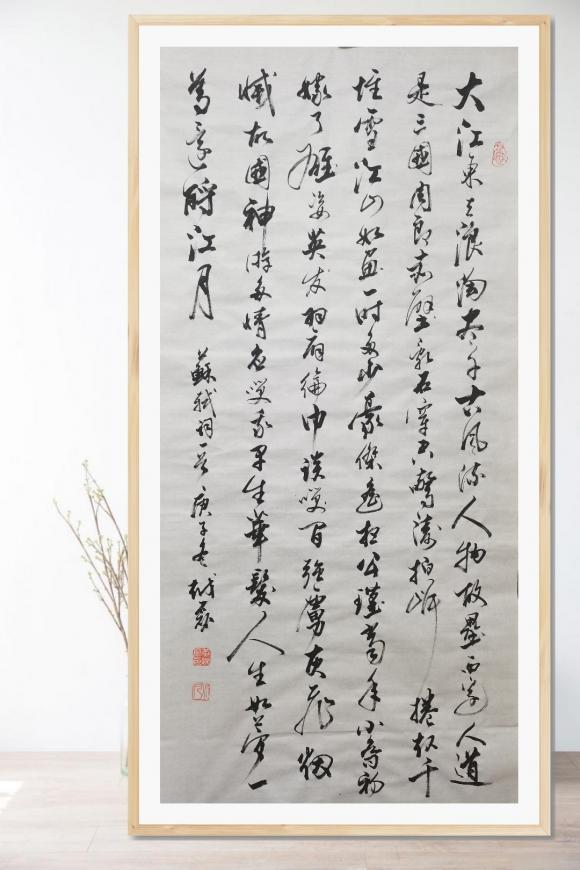 大江東去浪淘盡千古風流人物故壘西邊人道
是三國周郎赤壁亂石穿空驚濤拍岸捲起千
堆雪江山如畫一時多少豪傑遙想公瑾當年小喬初
嫁了雄姿英发羽扇綸巾談笑間強虜灰飛烟
滅故國神游多情應笑我早生華髮人生如夢一
尊還酹江月
蘇軾詞一首 庚子冬